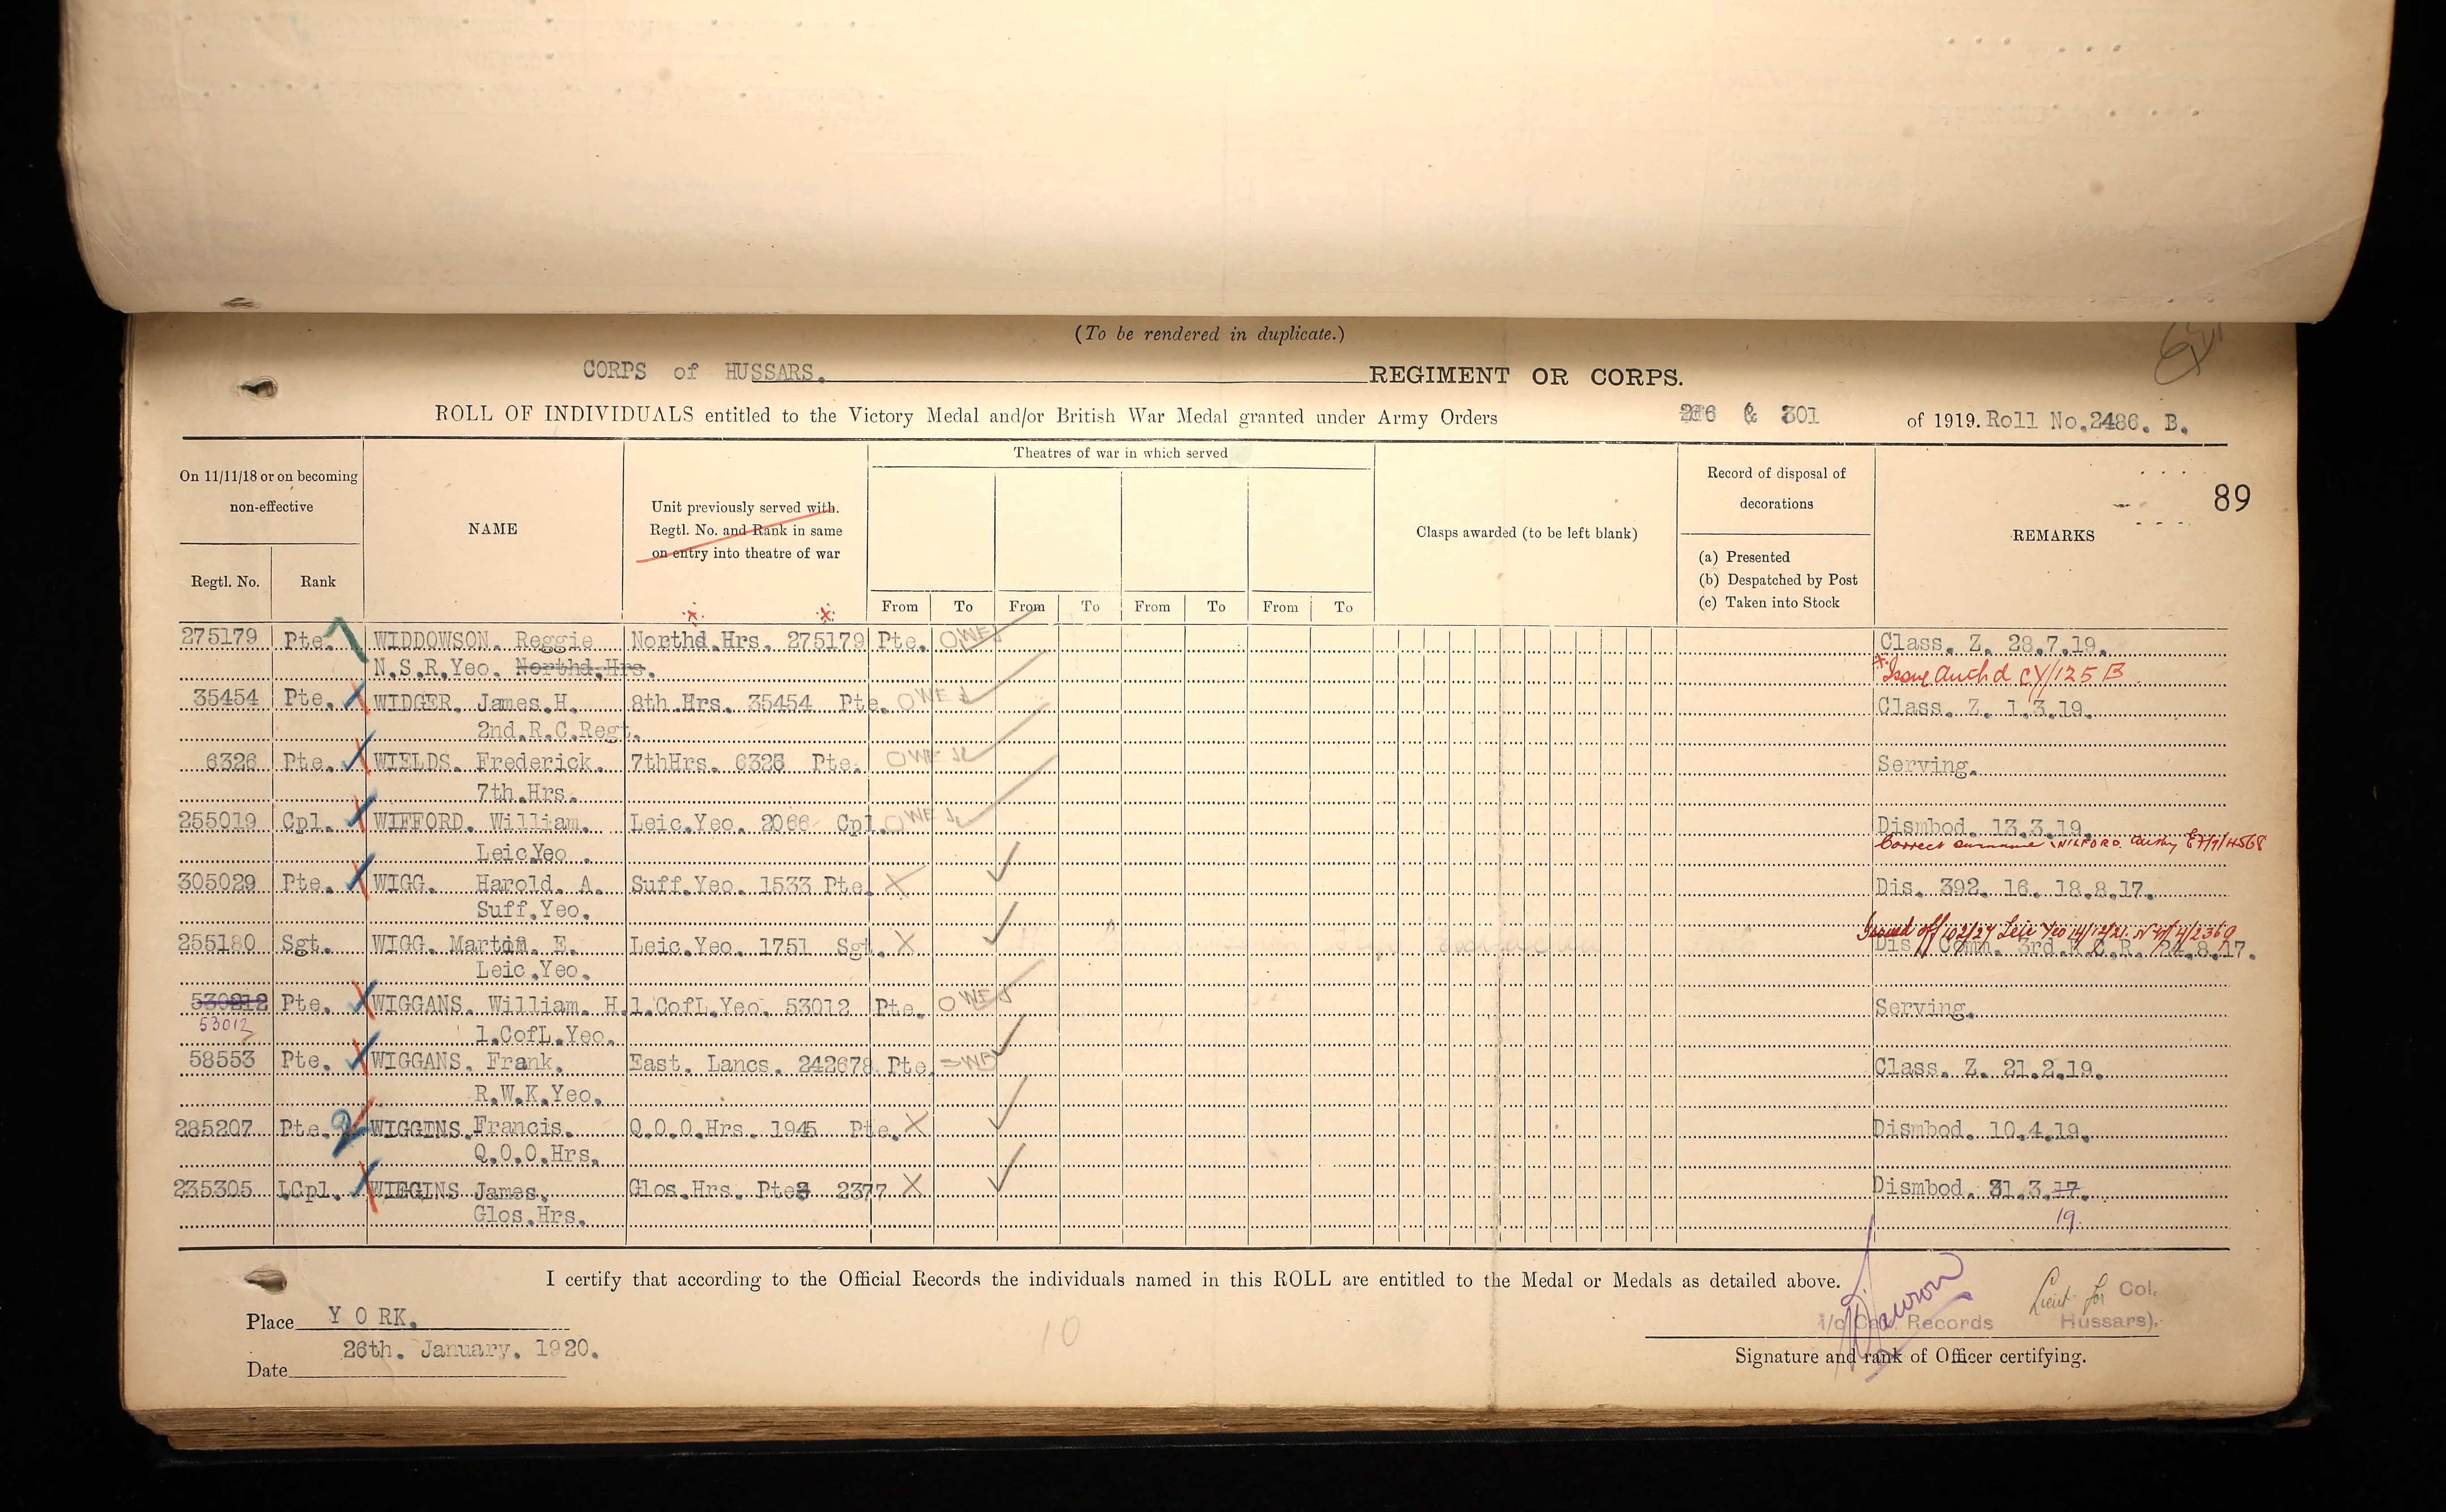 (To be rendered in duplicate.)
CORPS of HUSSARS. REGIMENT OR CORPS.
ROLL OF INDIVIDUALS entitled to the Victory Medal and/or British War Medal granted under Army Orders 266 & 301 of 1919. Roll No. 2486. B.
89
On 11/11/18 or on becoming non-effective
Regtl. No. Rank
NAME
Unit previously served with.
Regtl. No. and Rank in same
on entry into theatre of war
Theatres of war in which served
From To From To From To From To
Clasps awarded (to be left blank)
Record of disposal of decorations
(a) Presented
(b) Despatched by Post
(c) Taken into Stock
REMARKS
275179 Pte. WIDDOWSON. Reggie Northd.Hrs. 275179 Pte. Class. Z. 28.7.19.
N.S.R.Yeo. Northd.Hrs. Issue Auth d CY/125 B
35454 Pte. WIDGER. James.H. 8th.Hrs. 35454 Pte. Class. Z. 1.3.19.
2nd.R.C.Regt.
6326 Pte. WIELDS. Frederick. 7thHrs. 6326 Pte. Serving.
7th.Hrs.
255019 Cpl. WIFFORD. William. Leic.Yeo. 2066 Cpl. Dismbod. 13.3.19.
Leic.Yeo. Correct surname WILFORD.
305029 Pte. WIGG. Harold. A. Suff.Yeo. 1533 Pte. X Dis. 392. 16. 18.8.17.
Suff.Yeo.
255180 Sgt. WIGG. Martin. E. Leic.Yeo. 1751 Sgt. X Dis. Comm. 3rd.R.C.R. 24.8.17.
Leic.Yeo.
530212 Pte. WIGGANS. William. H. 1.CofL.Yeo. 53012 Pte. Serving.
53012 1.CofL.Yeo.
58553 Pte. WIGGANS. Frank. East. Lancs. 242678 Pte. Class. Z. 21.2.19.
R.W.K.Yeo.
285207 Pte. WIGGINS. Francis. Q.O.O.Hrs. 1945 Pte. X Dismbod. 10.4.19.
Q.O.O.Hrs.
235305 LCpl. WIGGINS James. Glos.Hrs. Pte 2377 X Dismbod. 31.3.17.
Glos.Hrs. 19.
I certify that according to the Official Records the individuals named in this ROLL are entitled to the Medal or Medals as detailed above.
Place YORK.
Date 26th. January. 1920.
10
Lieut for Col.
i/c Cav. Records Hussars).
Signature and rank of Officer certifying.